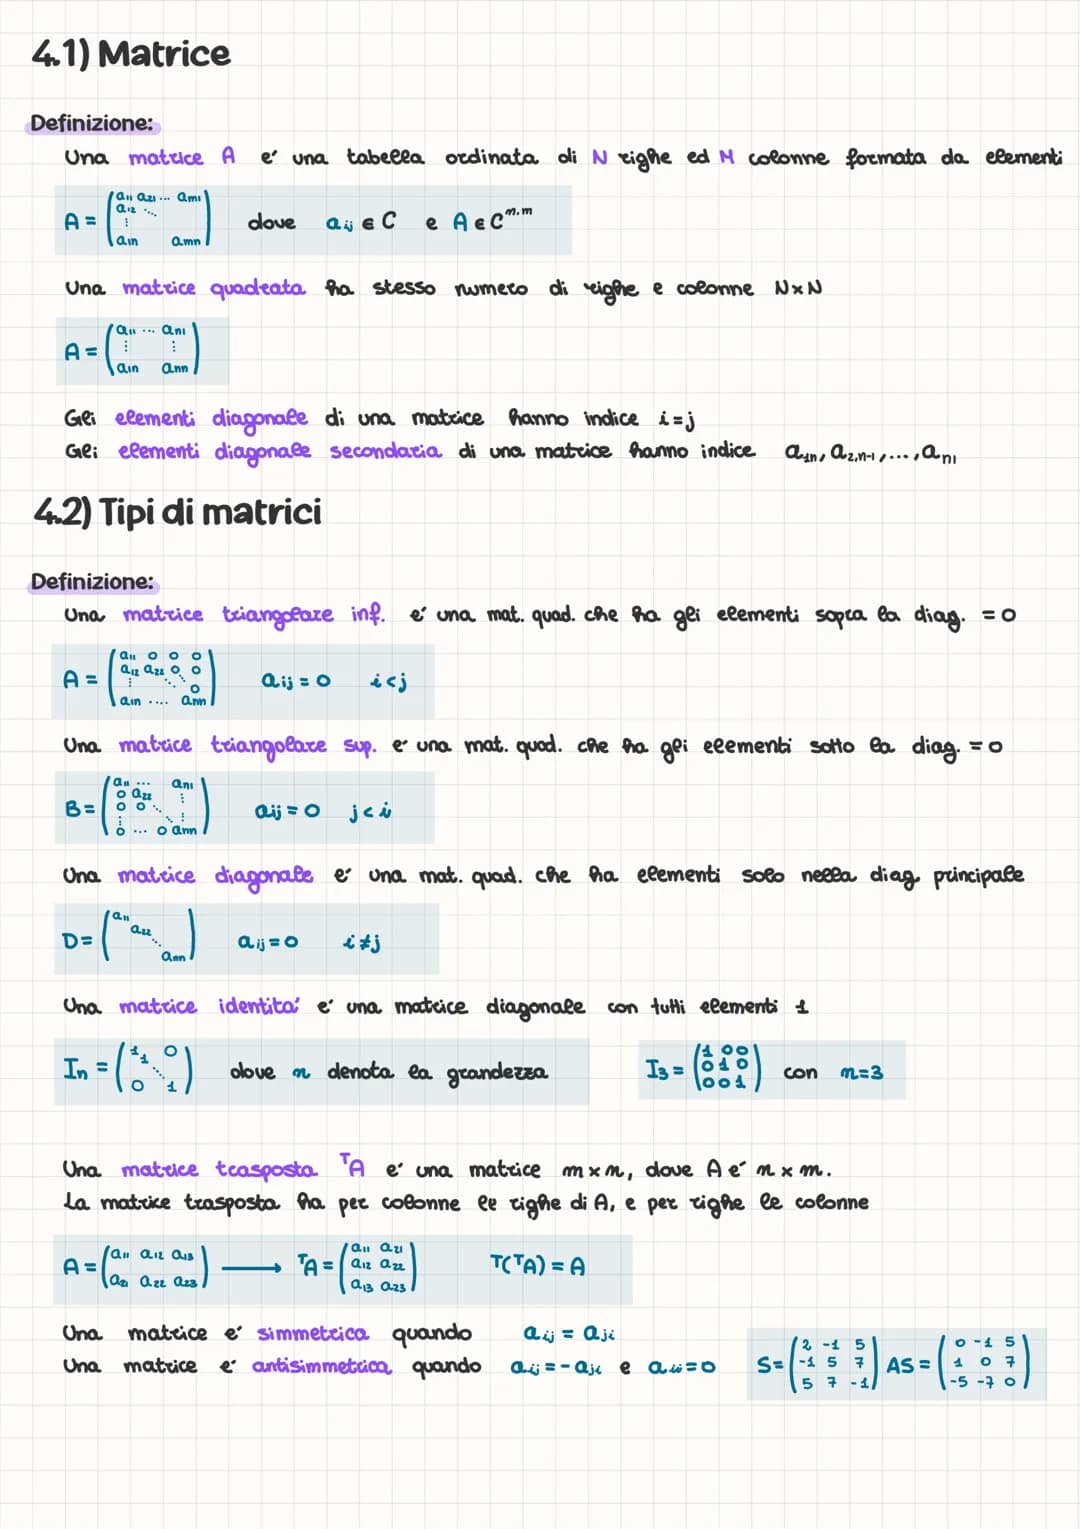 4.1) Matrice
Definizione:
Una matrice A e' una tabella ordinata di N righe ed M colonne formata da elementi
A = (a11 a21 ... am1
a12 ⋱
⋮
a1n amn) dove aij ∈ C e A ∈ C^m,m
Una matrice quadrata ha stesso numero di righe e colonne N×N
A = (a11 ... an1
⋮ ⋮
a1n ann)
Gli elementi diagonale di una matrice hanno indice i=j
Gli elementi diagonale secondaria di una matrice hanno indice a1n, a2,n-1, ..., an1
4.2) Tipi di matrici
Definizione:
Una matrice triangolare inf. e' una mat. quad. che ha gli elementi sopra la diag. = 0
A = (a11 0 0 0
a12 a22 0 0
⋮ ⋱ 0
a1n .... ann) aij = 0 i<j
Una matrice triangolare sup. e' una mat. quad. che ha gli elementi sotto la diag. = 0
B = (a11 ... an1
0 a22 ⋮
0 0 ⋱ ⋮
0 ... 0 ann) aij = 0 j<i
Una matrice diagonale e' una mat. quad. che ha elementi solo nella diag. principale
D = (a11
a22
⋱
ann) aij = 0 i≠j
Una matrice identita' e' una matrice diagonale con tutti elementi 1
In = (1 0
1
⋱
0 1) dove n denota la grandezza I3 = (1 0 0
0 1 0
0 0 1) con n=3
Una matrice trasposta ᵀA e' una matrice m×n, dove A e' n×m.
La matrice trasposta ha per colonne le righe di A, e per righe le colonne
A = (a11 a12 a13
a21 a22 a23) ⟶ ᵀA = (a11 a21
a12 a22
a13 a23) T(ᵀA) = A
Una matrice e' simmetrica quando aij = aji
Una matrice e' antisimmetrica quando aij = -aji e aii=0
S = (2 -1 5
-1 5 7
5 7 -1) AS = (0 -1 5
1 0 7
-5 -7 0)